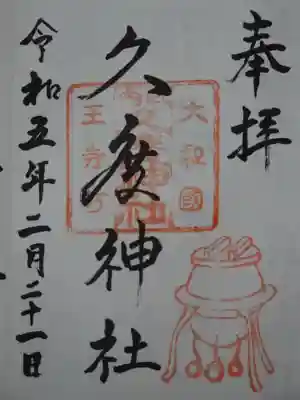 奉拝
久度神社
大和國
王寺町
令和五年二月二十一日